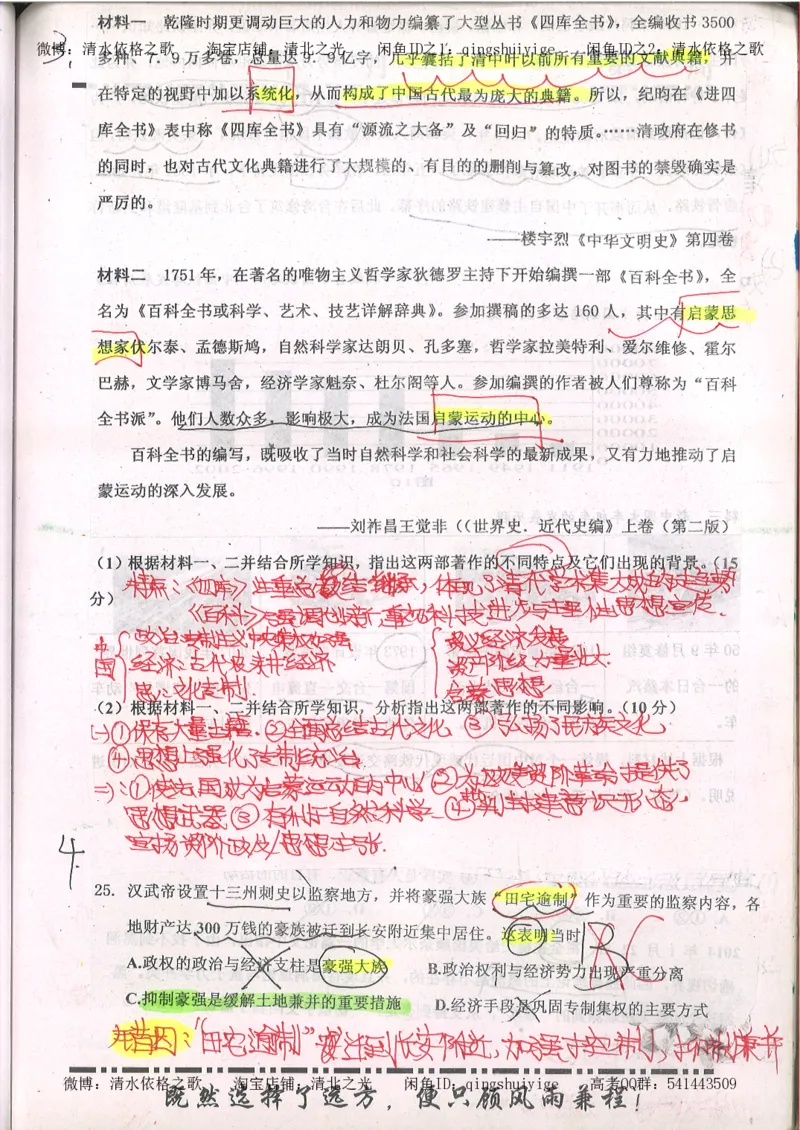 材料一 乾隆时期更调动巨大的人力和物力编纂了大型丛书《四库全书》，全编收书 3500
微博：清水依格之歌 淘宝店铺：清北之光 闲鱼ID之1：qingshuiyige 闲鱼ID之2：清水依格之歌
3.
多种、7．9 万多卷，总量达 9．9 亿字，几乎囊括了清中叶以前所有重要的文献典籍，并
在特定的视野中加以系统化，从而构成了中国古代最为庞大的典籍。所以，纪昀在《进四
库全书》表中称《四库全书》具有“源流之大备”及“回归”的特质。……清政府在修书
的同时，也对古代文化典籍进行了大规模的、有目的的删削与篡改，对图书的禁毁确实是
严厉的。
——楼宇烈《中华文明史》第四卷
材料二 1751 年，在著名的唯物主义哲学家狄德罗主持下开始编撰一部《百科全书》，全
名为《百科全书或科学、艺术、技艺详解辞典》。参加撰稿的多达 160 人，其中有启蒙思
想家伏尔泰、孟德斯鸠，自然科学家达朗贝、孔多塞，哲学家拉美特利、爱尔维修、霍尔
巴赫，文学家博马舍，经济学家魁奈、杜尔阁等人。参加编撰的作者被人们尊称为“百科
全书派”。他们人数众多，影响极大，成为法国启蒙运动的中心。
百科全书的编写，既吸收了当时自然科学和社会科学的最新成果，又有力地推动了启
蒙运动的深入发展。
——刘祚昌王觉非（《世界史．近代史编》上卷（第二版）
（1）根据材料一、二并结合所学知识，指出这两部著作的不同特点及它们出现的背景。（15
分）
特点：《四库》注重总结继承，体现了清代学术集大成的主要趋势
《百科》强调创新，重视科技进步与主要社会思想宣传.
中国 政治：专制主义中央集权加强 经济：古代农耕经济 思：文化专制
资义经济发展 资产阶级力量壮大 启蒙思想
（2）根据材料一、二并结合所学知识，分析指出这两部著作的不同影响。（10 分）
(一) ①保存大量古籍. ②全面总结古代文化 ③弘扬了民族文化
④思想上强化了专制统治
(二)：①使法国成为启蒙运动的中心 ②为资产阶级革命提供了
思想武器 ③有利于自然科学. ④
宣扬资阶政及思想主张.
4.
25. 汉武帝设置十三州刺史以监察地方，并将豪强大族“田宅逾制”作为重要的监察内容，各
地财产达 300 万钱的豪族被迁到长安附近集中居住。这表明当时 B
A.政权的政治与经济支柱是豪强大族 B.政治权利与经济势力出现严重分离
C.抑制豪强是缓解土地兼并的重要措施 D.经济手段是巩固专制集权的主要方式
错因：“田宅逾制” 迁到长安附近，加强对控制，抑制兼并
微博：清水依格之歌 淘宝店铺：清北之光 闲鱼ID：qingshuiyige 高考QQ群：541443509
既然选择了远方，便只顾风雨兼程！